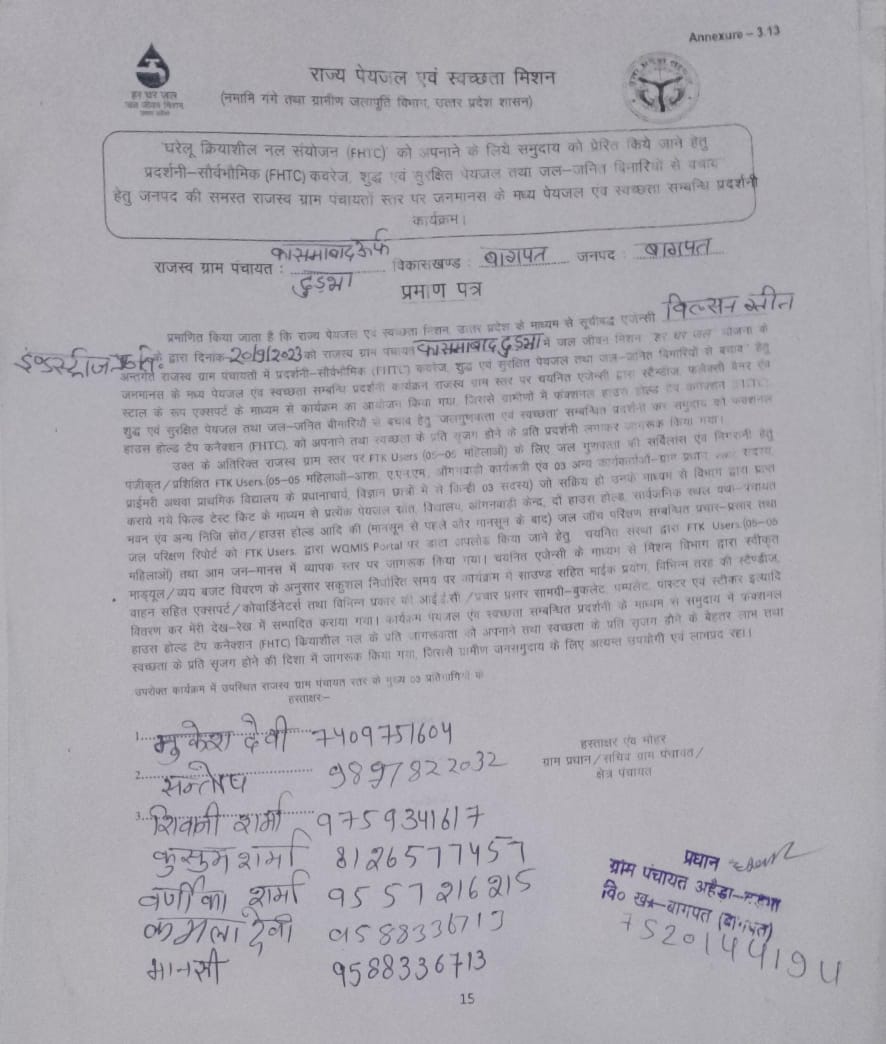 Annexure – 3.13
हर घर जल
जल जीवन मिशन
राज्य पेयजल एवं स्वच्छता मिशन
(नमामि गंगे तथा ग्रामीण जलापूर्ति विभाग, उत्तर प्रदेश शासन)
"घरेलू क्रियाशील नल संयोजन (FHTC) को अपनाने के लिये समुदाय को प्रेरित किये जाने हेतु
प्रदर्शनी–सौर्वभौमिक (FHTC) कवरेज, शुद्ध एवं सुरक्षित पेयजल तथा जल–जनित बिमारियों से बचाव
हेतु जनपद की समस्त राजस्व ग्राम पंचायतों स्तर पर जनमानस के मध्य पेयजल एंव स्वच्छता सम्बन्धि प्रदर्शनी
कार्यक्रम।
कासमाबाद ऊर्फ
राजस्व ग्राम पंचायत : दुड़भा विकासखण्ड : बागपत जनपद : बागपत
प्रमाण पत्र
प्रमाणित किया जाता है कि राज्य पेयजल एवं स्वच्छता मिशन, उत्तर प्रदेश के माध्यम से सूचीबद्ध एजेन्सी विल्सन ग्रीन
इंडस्ट्रीज के द्वारा दिनांक 20/9/2023 को राजस्व ग्राम पंचायत कासमाबाद दुड़भा में जल जीवन मिशन "हर घर जल" योजना के
अन्तर्गत राजस्व ग्राम पंचायतों में प्रदर्शनी–सौर्वभौमिक (FHTC) कवरेज, शुद्ध एवं सुरक्षित पेयजल तथा जल–जनित बिमारियों से बचाव" हेतु
जनमानस के मध्य पेयजल एंव स्वच्छता सम्बन्धि प्रदर्शनी कार्यक्रम राजस्व ग्राम स्तर पर चयनित एजेन्सी द्वारा स्टैन्डीज, फलैक्सी बैनर एंव
स्टाल के रूप एक्सपर्ट के माध्यम से कार्यक्रम का आयोजन किया गया, जिससे ग्रामीणों में फंक्शनल हाउस होल्ड टैप कनेक्शन (FHTC),
शुद्ध एवं सुरक्षित पेयजल तथा जल–जनित बीमारियों से बचाव हेतु "जलगुणवत्ता एवं स्वच्छता" सम्बन्धित प्रदर्शनी कर समुदाय को फंक्शनल
हाउस होल्ड टेप कनेक्शन (FHTC), को अपनाने तथा स्वच्छता के प्रति सृजग होने के प्रति प्रदर्शनी लगाकर जागरूक किया गया।
उक्त के अतिरिक्त राजस्व ग्राम स्तर पर FTK Users (05–05 महिलाओं) के लिए जल गुणवत्ता की सर्विलांस एंव निगरानी हेतु
पंजीकृत/प्रशिक्षित FTK Users.(05–05 महिलाओ–आशा, ए.एन.एम, आँगनवाड़ी कार्यकत्री एंव 03 अन्य कार्यकर्ताओं–ग्राम प्रधान सदस्य,
प्राईमरी अथवा प्राथमिक विद्यालय के प्रधानाचार्य, विज्ञान छात्रों में से किन्ही 03 सदस्य) जो सक्रिय हो उनके माध्यम से विभाग द्वारा प्राप्त
कराये गये फिल्ड टेस्ट किट के माध्यम से प्रत्येक पेयजल स्रोत, विद्यालय, आँगनवाड़ी केन्द्र, दो हाउस होल्ड, सार्वजनिक स्थल यथा–पंचायत
भवन एंव अन्य निजि स्रोत/हाउस होल्ड आदि की (मानसून से पहले और मानसून के बाद) जल जाँच परिक्षण सम्बन्धित प्रचार–प्रसार तथा
जल परिक्षण रिपोर्ट को FTK Users. द्वारा WQMIS Portal पर डाटा अपलोड किया जाने हेतु चयनित संस्था द्वारा FTK Users.(05–05
महिलाओं) तथा आम जन–मानस में व्यापक स्तर पर जागरूक किया गया। चयनित एजेन्सी के माध्यम से मिशन विभाग द्वारा स्वीकृत
माड्यूल/व्यय बजट विवरण के अनुसार सकुशल निर्धारित समय पर कार्यक्रम में साउण्ड सहित माईक प्रयोग, विभिन्न तरह की स्टैण्डीज,
वाहन सहित एक्सपर्ट/कोवार्डिनेटर्स तथा विभिन्न प्रकार की आई.ई.सी/प्रचार प्रसार सामग्री–बुकलेट, पम्पलेट, पोस्टर एवं स्टीकर इत्यादि
वितरण कर मेरी देख–रेख में सम्पादित कराया गया। कार्यक्रम पेयजल एंव स्वच्छता सम्बन्धित प्रदर्शनी के माध्यम से समुदाय में फंक्शनल
हाउस होल्ड टेप कनैक्शन (FHTC) कियाशील नल के प्रति जागरूकता को अपनाने तथा स्वच्छता के प्रति सृजग होने के बेहतर लाभ तथा
स्वच्छता के प्रति सृजग होने की दिशा में जागरूक किया गया, जिससे ग्रामीण जनसमुदाय के लिए अत्यन्त उपयोगी एवं लाभप्रद रहा।
उपरोक्त कार्यक्रम में उपस्थित राजस्व ग्राम पंचायत स्तर के मुख्य 03 प्रतिभागियों के
हस्ताक्षर:–
1. मुकेश देवी 7409751604
2. सन्तोष 9897822032
3. शिवानी शर्मा 9759341617
कुसुम शर्मा 8126577457
वर्णीका शर्मा 9557216215
कमला देवी 9588336713
मानसी 9588336713
हस्ताक्षर एंव मोहर
ग्राम प्रधान/सचिव ग्राम पंचायत/
क्षेत्र पंचायत
प्रधान
ग्राम पंचायत अहैडा
वि० ख०–बागपत (बागपत)
15